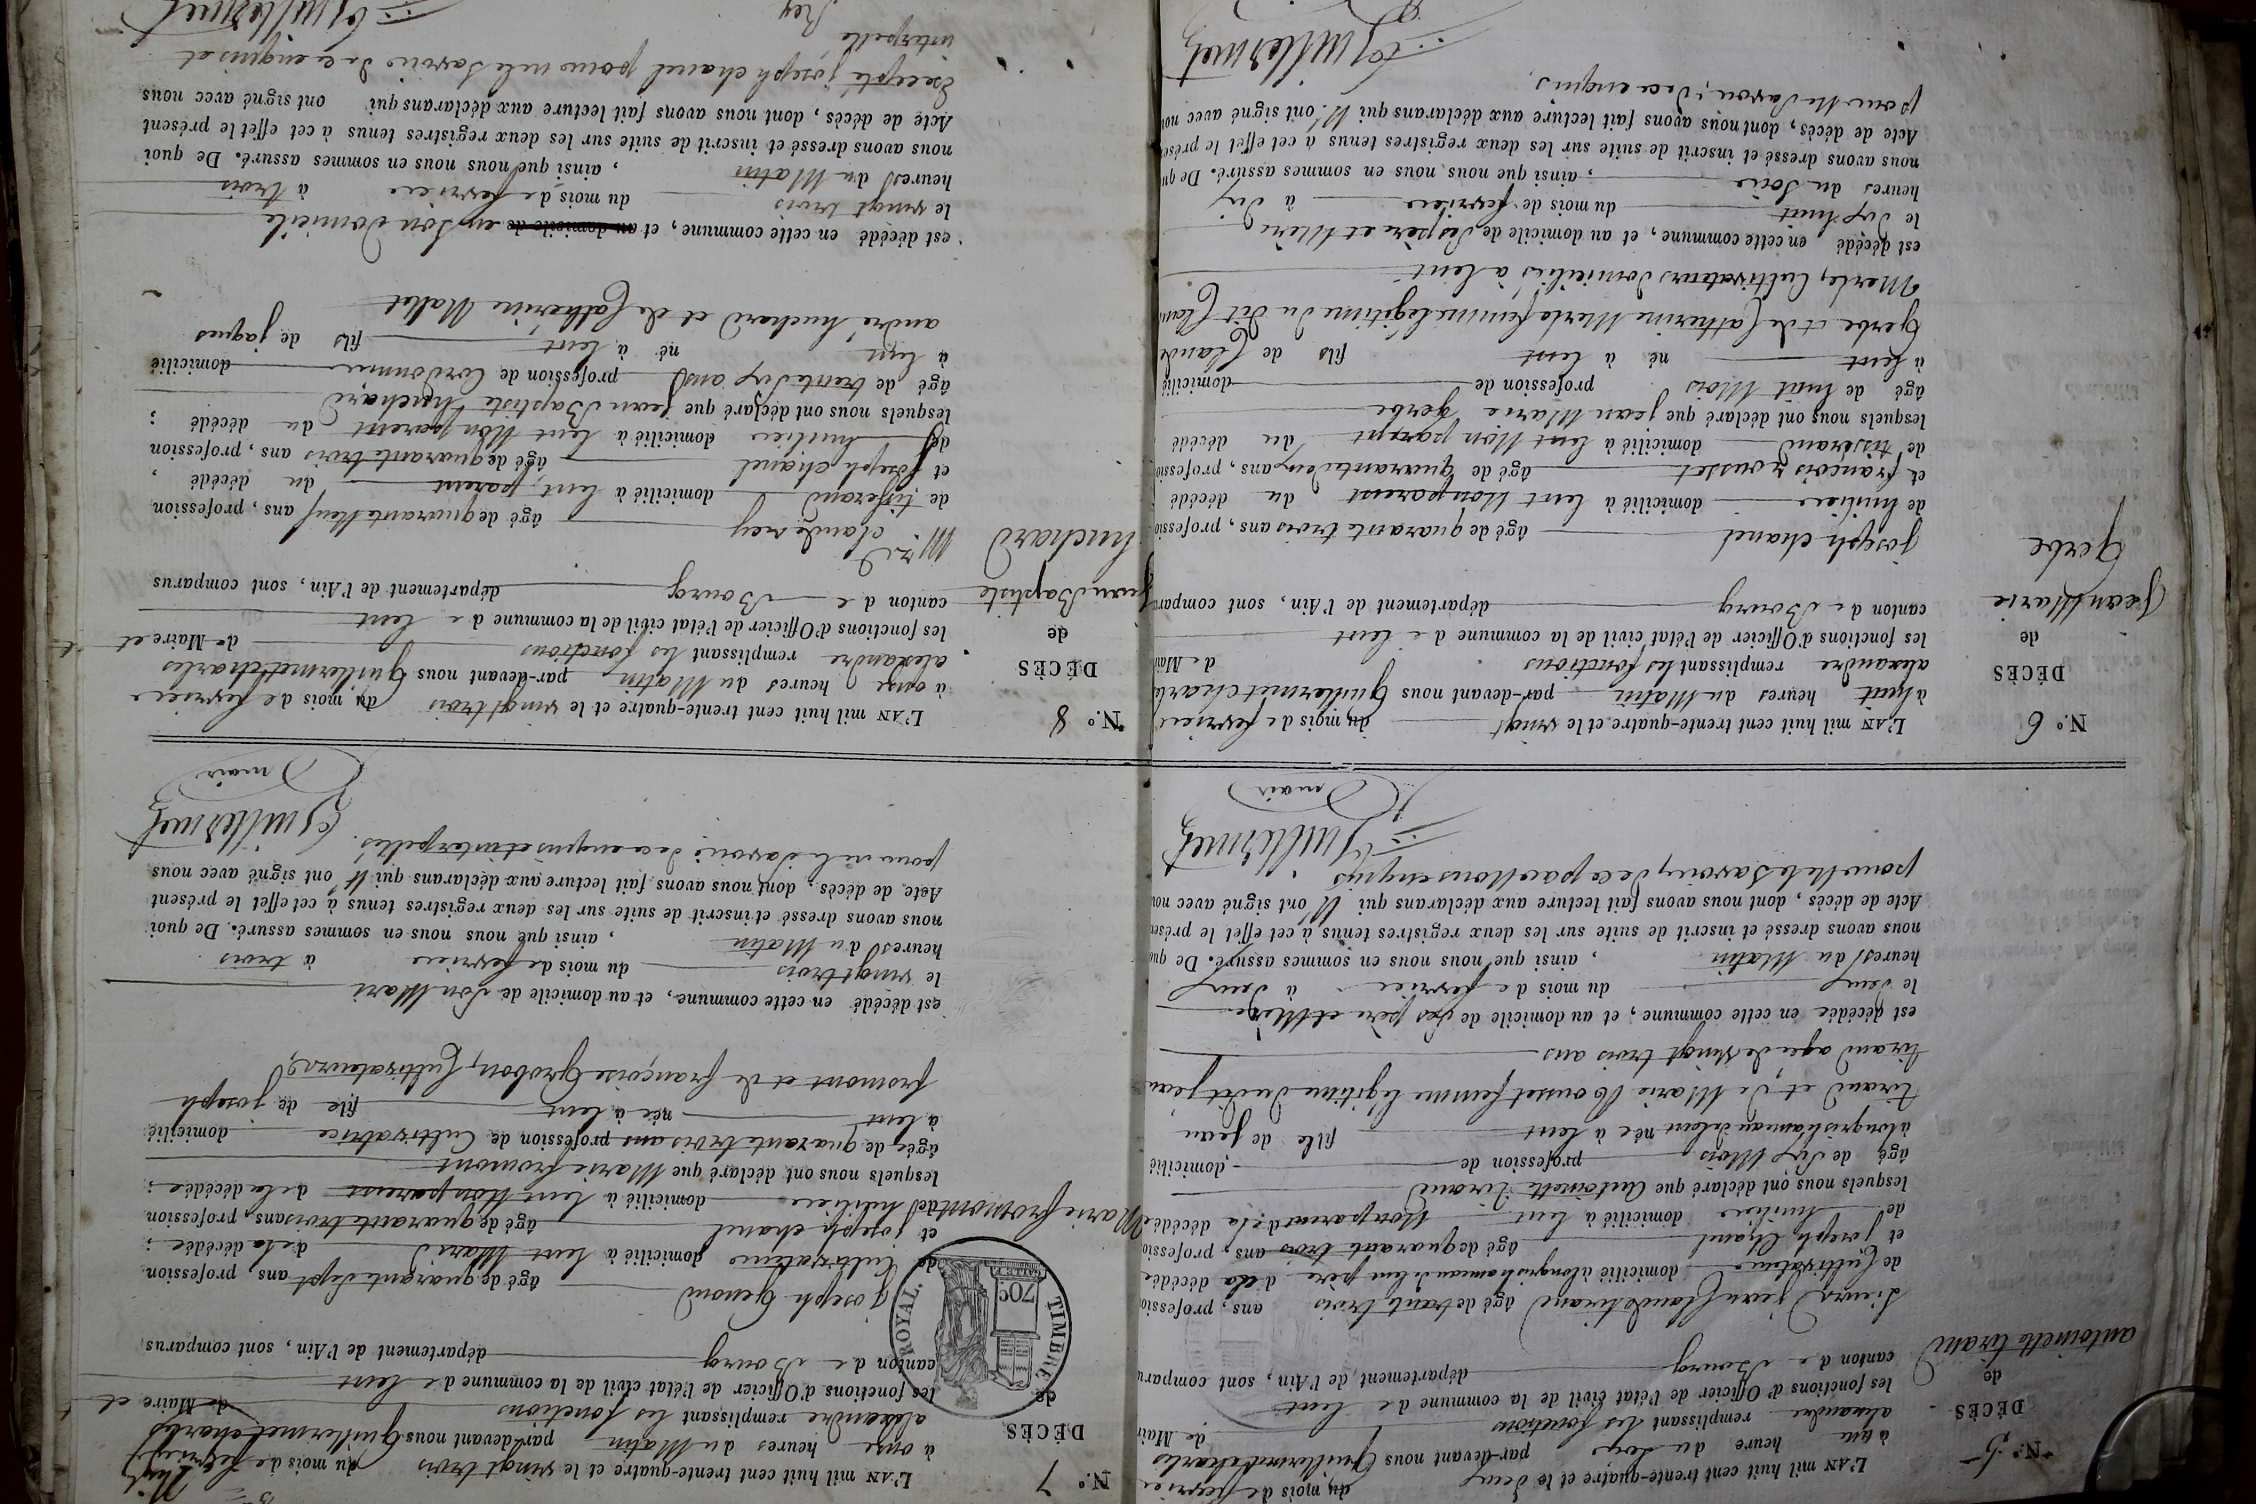 N.º 5
DÉCÈS
de
antoinette tirand
L'AN mil huit cent trente-quatre et le deux du mois de fevrier
à une heure du Soir par-devant nous Guillermet charles
alexandre remplissant les fonctions de Mair
les fonctions d'Officier de l'état civil de la commune de lent
canton de Bourg département de l'Ain, sont comparu
Sieurs jean Claude tirand âgé de trente trois ans, professio
de Cultivateur domicilié à longrishamau de lent père de la décédée
et joseph Chanel âgé de quarante trois ans, professio
de huilier domicilié à lent Non parent de la décédée
lesquels nous ont déclaré que Antoinette tirand
âgé de Six Mois profession de domicilié
à longrishamau de lent née à lent fille de jean
tirand et de Marie Rousset femme légitime du dit jean
tirand agée de Vingt trois ans
est décédée en cette commune, et au domicile de ses père et Mère
le deux du mois de fevrier à deux
heures du Matin, ainsi que nous nous en sommes assuré. De qu
nous avons dressé et inscrit de suite sur les deux registres tenus à cet effet le présen
Acte de décès, dont nous avons fait lecture aux déclarans qui N' ont signé avec nou
pour Ne le Savoir, de ce par Nous enquis
Guillermet
mair
N.º 6
DÉCÈS
de
Jean Marie
Gerbe
L'AN mil huit cent trente-quatre et le vingt du mois de fevrier
à huit heures du Matin par-devant nous Guillermet charles
alexandre remplissant les fonctions de Mai
les fonctions d'Officier de l'état civil de la commune de lent
canton de Bourg département de l'Ain, sont compar
joseph chanel âgé de quarante trois ans, professio
de huilier domicilié à lent Non parent du décédé
et francois rousset âgé de quarante cinq ans, professio
de tisserand domicilié à lent Non parent du décédé
lesquels nous ont déclaré que jean Marie Gerbe
âgé de huit Mois profession de domicilié
à lent né à lent fils de Claude
Gerbe et de Catherine Merle femme légitime du dit Claude
Merle, Cultivateurs domiciliés à lent
est décédé en cette commune, et au domicile de Ses père et Mère
le dix huit du mois de fevrier à dix
heures du Soir, ainsi que nous nous en sommes assuré. De qu
nous avons dressé et inscrit de suite sur les deux registres tenus à cet effet le présen
Acte de décès, dont nous avons fait lecture aux déclarans qui N' ont signé avec no
pour Ne Savoir, de ce enquis
Guillermet
N.º 7
DÉCÈS
de
Marie fromont
TIMBRE ROYAL
70c
L'AN mil huit cent trente-quatre et le vingt trois du mois de fevrier
à onze heures du Matin par-devant nous Guillermet charles
alexandre remplissant les fonctions de Maire et
les fonctions d'Officier de l'état civil de la commune de lent
canton de Bourg département de l'Ain, sont comparus
joseph Genoud âgé de quarante Sept ans, profession
de Cultivateur domicilié à lent Mari de la décédée;
et joseph chanel âgé de quarante trois ans, profession
de huilier domicilié à lent Non parent de la décédée:
lesquels nous ont déclaré que Marie fromont
âgée de quarante trois ans profession de Cultivatrice domicilié
à lent née à lent fille de joseph
fromont et de françoise Grobon, Cultivateurs,
est décédée en cette commune, et au domicile de Son Mari
le vingt trois du mois de fevrier à trois
heures du Matin, ainsi que nous nous en sommes assuré. De quoi
nous avons dressé et inscrit de suite sur les deux registres tenus à cet effet le présent
Acte de décès, dont nous avons fait lecture aux déclarans qui N' ont signé avec nous
pour ne le Savoir de ce enquis et interpellés.
Guillermet
mair
N.º 8
DÉCÈS
de
jean Baptiste
huchard
L'AN mil huit cent trente-quatre et le vingt trois du mois de fevrier
à onze heures du Matin par-devant nous Guillermet charles
alexandre remplissant les fonctions de Maire et
les fonctions d'Officier de l'état civil de la commune de lent
canton de Bourg département de l'Ain, sont comparus
claude rey âgé de quarante Neuf ans, profession
de tisserand domicilié à lent, parent du décédé,
et joseph chanel âgé de quarante trois ans, profession
de huilier domicilié à lent Non parent du décédé:
lesquels nous ont déclaré que jean Baptiste huchard
âgé de trente Six ans profession de Cordonnier domicilié
à lent né à lent fils de jaques
andré huchard et de Catherine Mallet
est décédé en cette commune, et au domicile de en Son Domicile
le vingt trois du mois de fevrier à trois
heures du Matin, ainsi que nous nous en sommes assuré. De quoi
nous avons dressé et inscrit de suite sur les deux registres tenus à cet effet le présent
Acte de décès, dont nous avons fait lecture aux déclarans qui ont signé avec nous
Excepté joseph chanel pour ne le Savoir de ce enquis et
interpelle
Rey
Guillermet